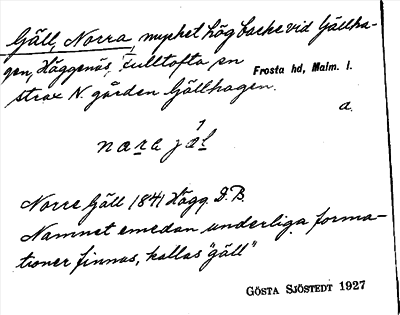 Gäll, Norra, mycket hög backe vid Gällha-
gen, Häggenäs, Fulltofta sn
Frosta hd, Malm. l.
strax N. gården Gällhagen.
a.
Norre Gäll 1841 Hägg. D.B.
Namnet emedan underliga forma-
tioner finnas, kallas "gäll"
GÖSTA SJÖSTEDT 1927